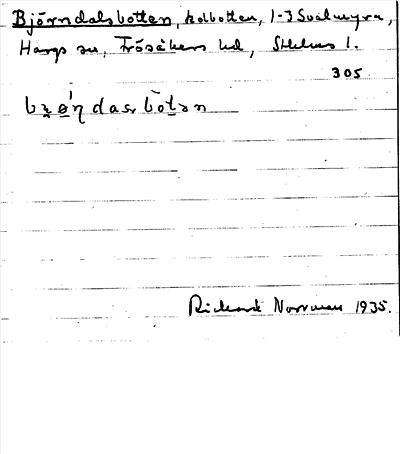 Björndalsbotten, kolbotten, 1-3 Svilmyra,
Hargs sn, Frösåkers hd, Sthlms l.
305
Richard Norrman 1935.